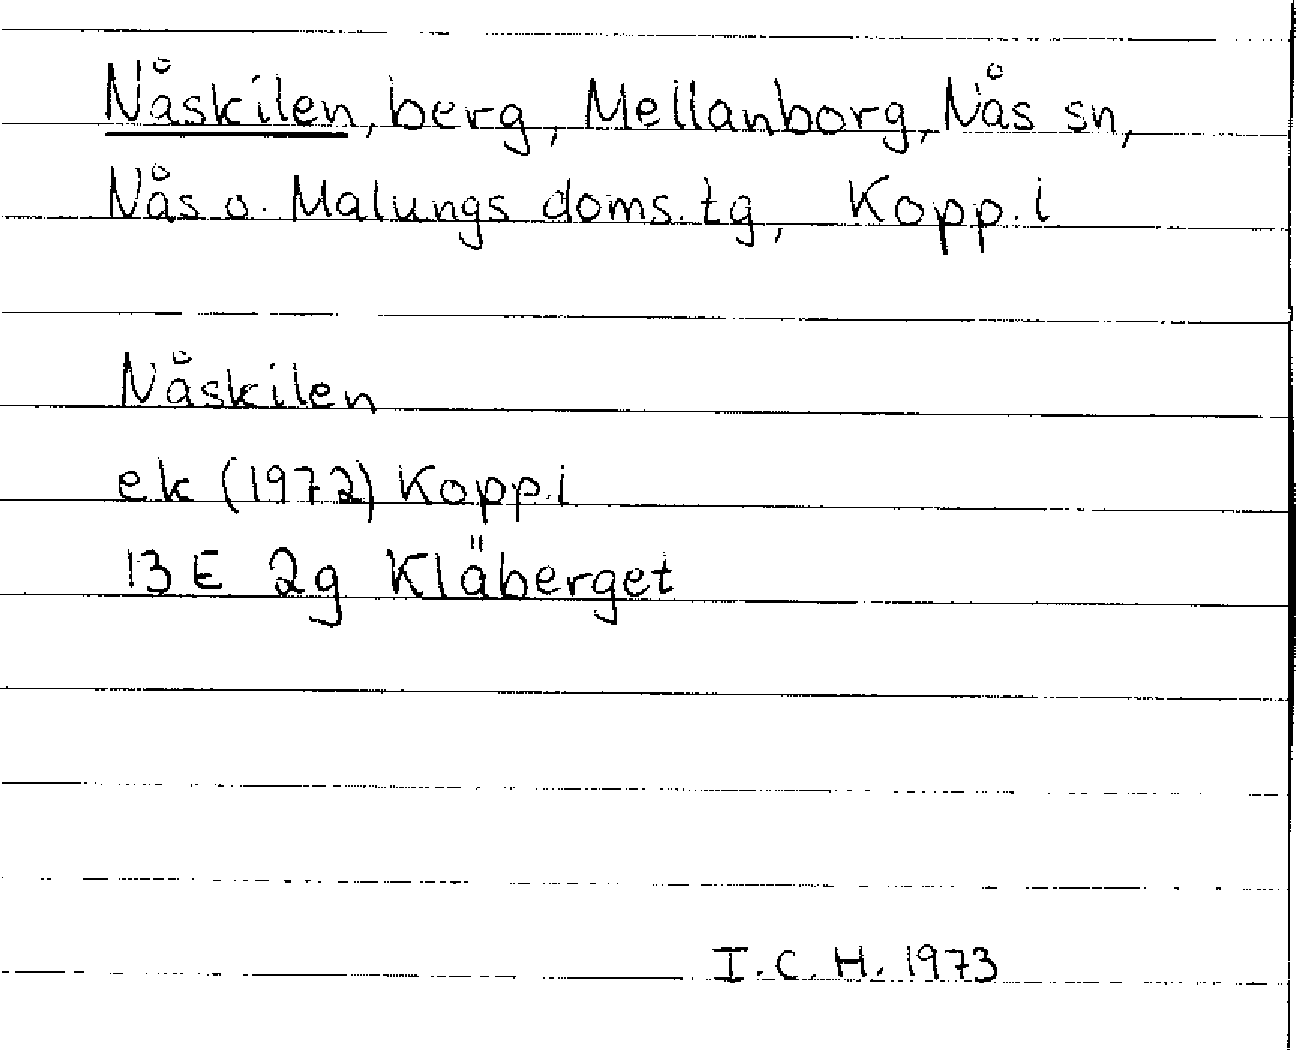 Nåskilen, berg, Mellanborg, Nås sn,
Nås o. Malungs doms. tg, Kopp. l
Nåskilen
ek (1972) Kopp. l
13 E 2g Kläberget
I. C. H. 1973